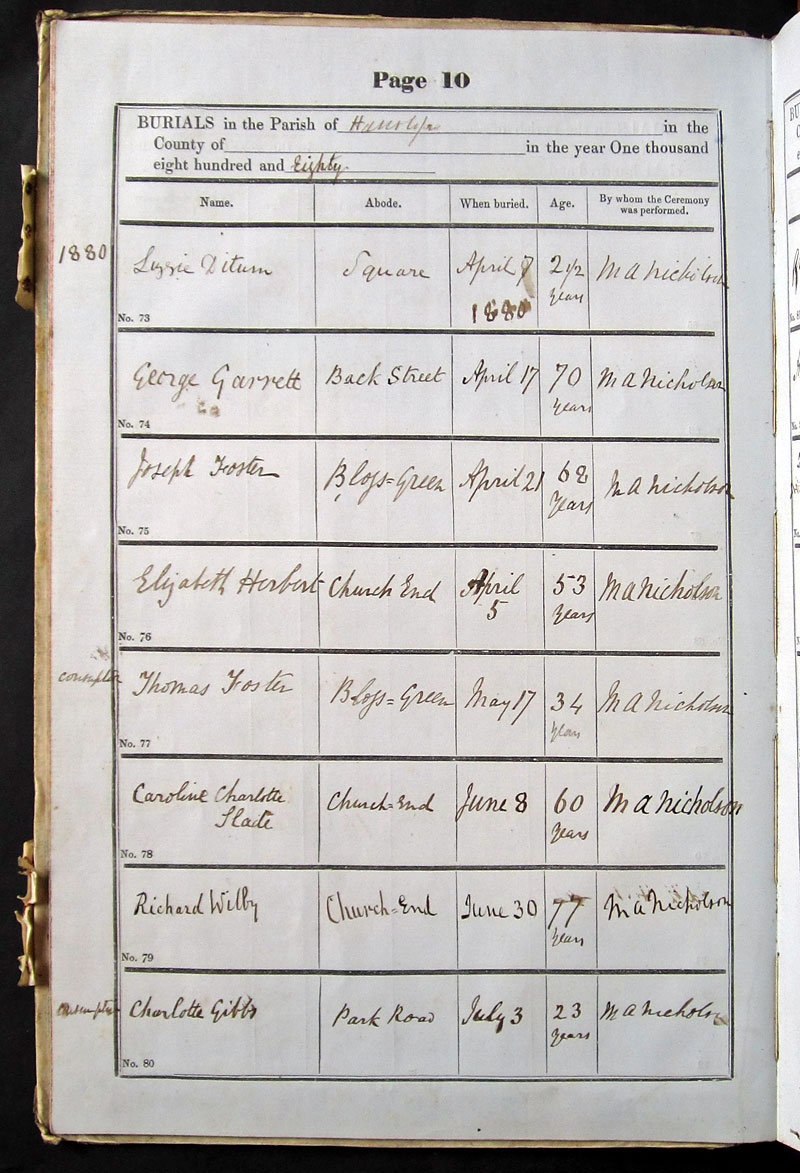 Page 10
BURIALS in the Parish of in the
County of in the year One thousand
eight hundred and Eighty
Name. Abode. When buried. Age. By whom the Ceremony was performed.
1880 Lizzie Ditum Square April 7 1880 2 1/2 years M A Nicholson
No. 73
George Garrett Back Street April 17 70 years M A Nicholson
No. 74
Joseph Foster Bloss=Green April 21 68 years M A Nicholson
No. 75
Elizabeth Herbert Church End April 5 53 years M A Nicholson
No. 76
consumption Thomas Foster Bloss=Green May 17 34 years M A Nicholson
No. 77
Caroline Charlotte Slade Church=End June 8 60 years M A Nicholson
No. 78
Richard Wilby Church=End June 30 77 years M A Nicholson
No. 79
consumption Charlotte Gibbs Park Road July 3 23 years M A Nicholson
No. 80